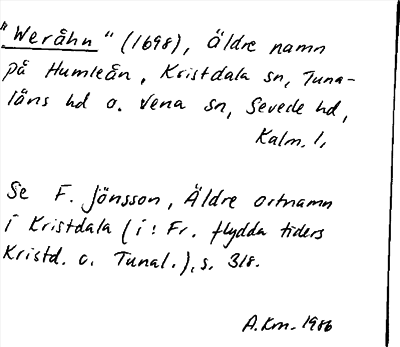 "Weråhn" (1698), Äldre namn
på Humleån, Kristdala sn, Tuna-
läns hd o. Vena sn, Sevede hd,
Kalm. l,
Se F. Jönsson, Äldre ortnamn
i Kristdala (i: Fr. flydda tiders
Kristd. o. Tunal.), s. 318.
A.Km. 1986